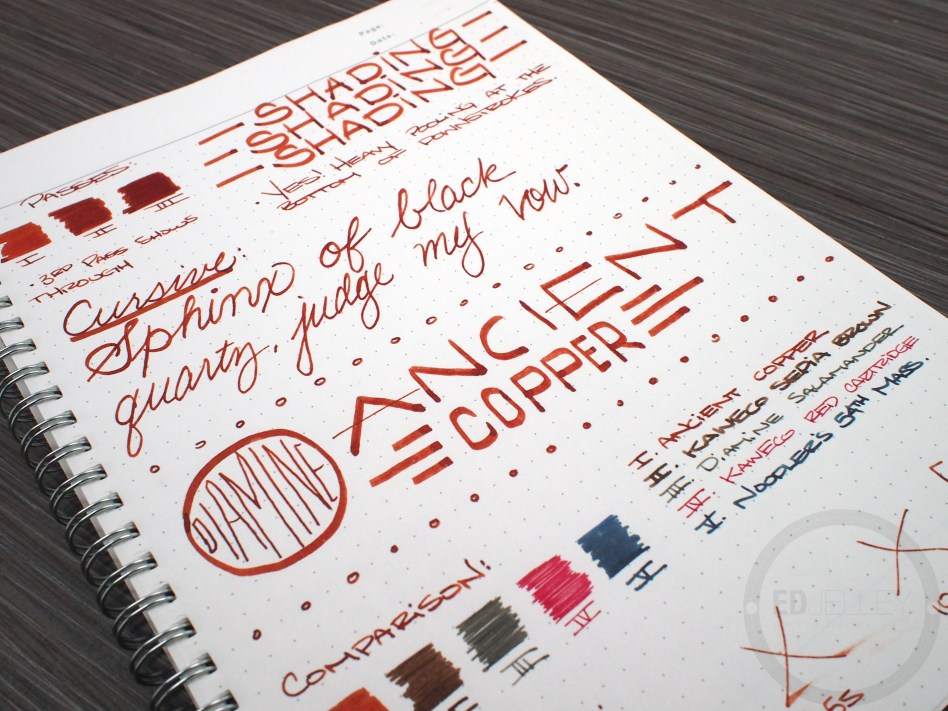 Page:
Date:
SHADING
SHADING
SHADING
· YES! HEAVY POOLING AT THE
BOTTOM OF DOWNSTROKES.
PASSES:
I II III
· 3RD PASS SHOWS
THROUGH
Cursive:
Sphinx of black
quartz, judge my vow.
DIAMINE
ANCIENT
COPPER
I: ANCIENT COPPER
II: KAWECO SEPIA BROWN
III: DIAMINE SALAMANDER
IV: KAWECO RED CARTRIDGE
V: NOODLER'S 54TH MASS.
COMPARISON:
II III IV V
ED JELLEY